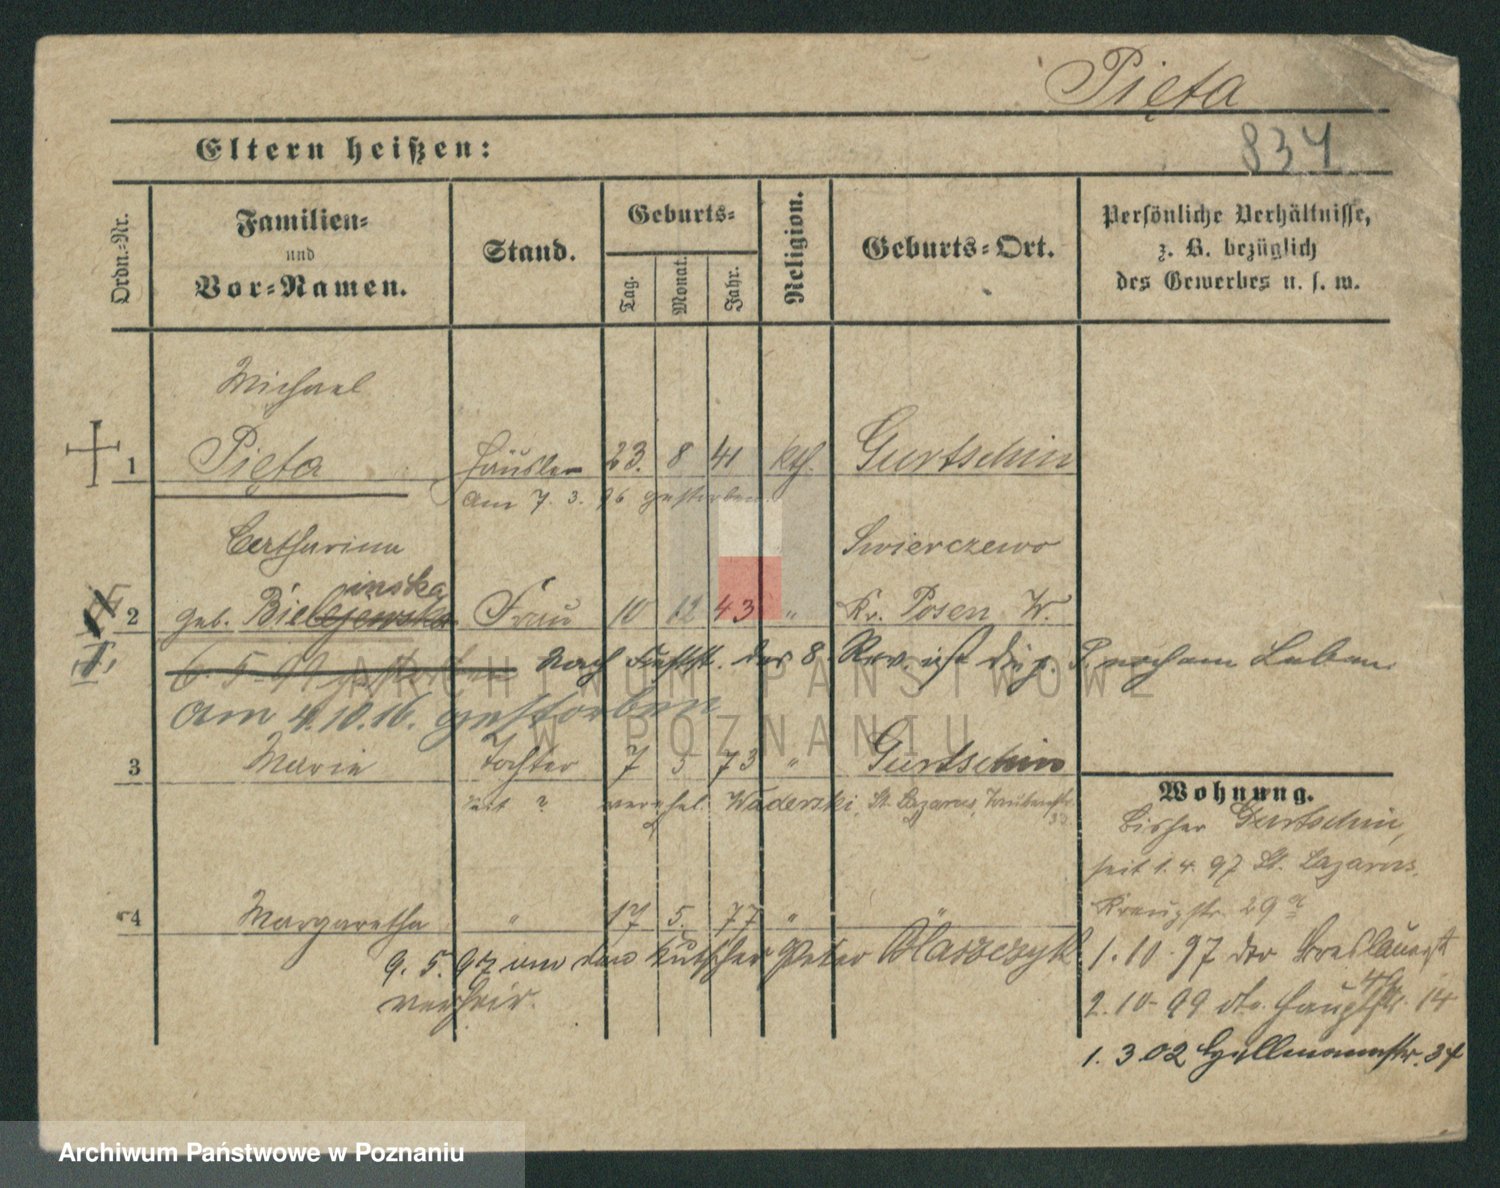 Pięta
834
Eltern heißen:
Ordn.-Nr.
Familien-
und
Vor-Namen.
Stand.
Geburts-
Tag.
Monat.
Jahr.
Religion.
Geburts-Ort.
Persönliche Verhältnisse,
z. B. bezüglich
des Gewerbes u. s. w.
Michael
1 Pięta Häusler 23. 8 41 kth. Gurtschin
am 7. 3. 96 gestorben
Catharina Swierczewo
inska
2 geb. Bielejewska Frau 10 12 43 " Kr. Posen W.
6. 5. 99 gestorben nach Festst. des 8. Rev. ist die p. P. noch am Leben.
am 4.10.16. gestorben
3 Marie Tochter 7 5 73 " Gurtschin
seit ? verehel. Waderski, St. Lazarus,
Wohnung.
bisher Gurtschin,
seit 1. 4. 97 St. Lazarus.
Kreuzstr. 29 a
4 Margaretha " 17 5. 77 " "
9. 5. 97 an den Kutscher Peter Blaszczyk
verheir.
1. 10. 97 der Breslauerstr
2. 10. 99 dto. Hauptstr. 14
1. 3 02 34
ARCHIWUM PAŃSTWOWE
W POZNANIU
Archiwum Państwowe w Poznaniu